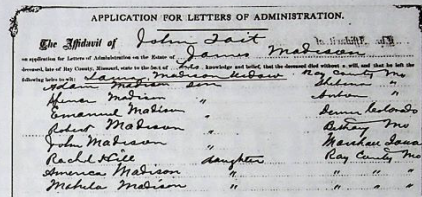 APPLICATION FOR LETTERS OF ADMINISTRATION.
The Affidavit of John Tait
on application for Letters of Administration on the Estate of James Madison
deceased, late of Ray County, Missouri, to the best of his knowledge and belief, that the deceased died without a will, and that he left
the following heirs to wit: Madison Widow Ray County Mo
Adam Madison son "
Madison " "
Emanuel Madison " Denver Colorado
Robert Madison " Bethany Mo
John Madison " Iowa
Rachel Hill daughter Ray County Mo
America Madison " " " "
Mehula Madison " " " "